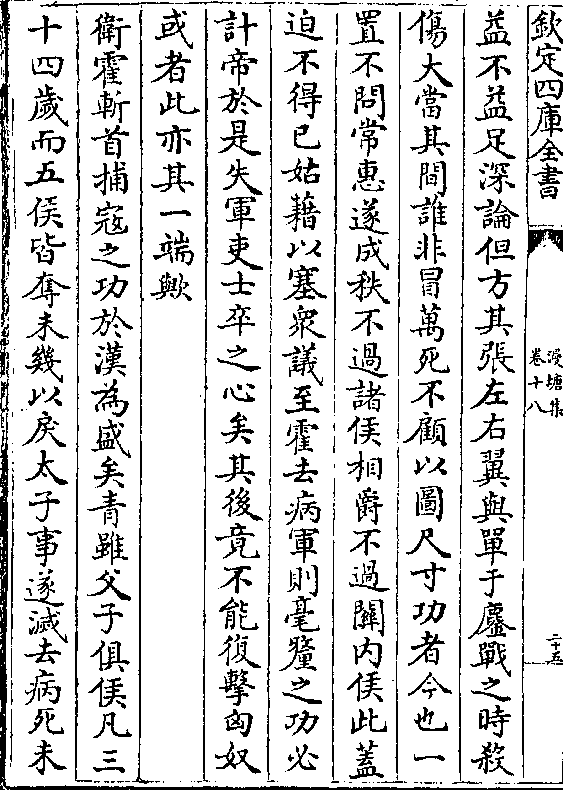 欽定四庫全書
漫塘集
卷十八
二十五
益不益足深論但方其張左右翼與單于鏖戰之時殺
傷大當其間誰非冒萬死不顧以圖尺寸功者今也一
置不問常惠遂成秩不過諸侯相爵不過關内侯此蓋
迫不得已姑藉以塞衆議至霍去病軍則毫釐之功必
計帝於是失軍吏士卒之心矣其後竟不能復擊匈奴
或者此亦其一端歟
衛霍斬首捕寇之功於漢為盛矣青雖父子俱侯凡三
十四歲而五侯皆奪未幾以戾太子事遂滅去病死未